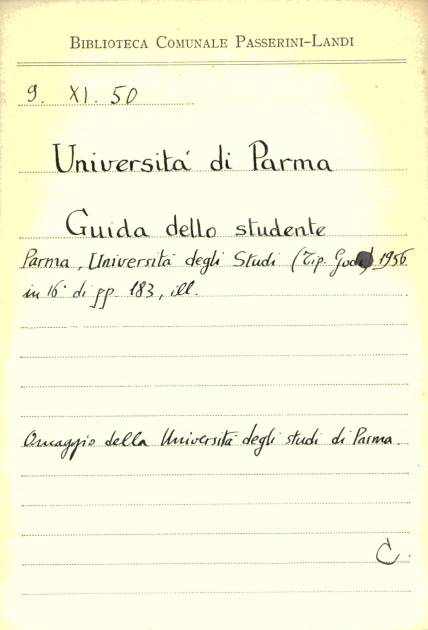 BIBLIOTECA COMUNALE PASSERINI-LANDI
9. XI. 50
Universitá di Parma
Guida dello studente
Parma, Università degli Studi (Tip. Godi) 1956
in 16° di pp. 183, ill.
Omaggio della Università degli studi di Parma.
C.